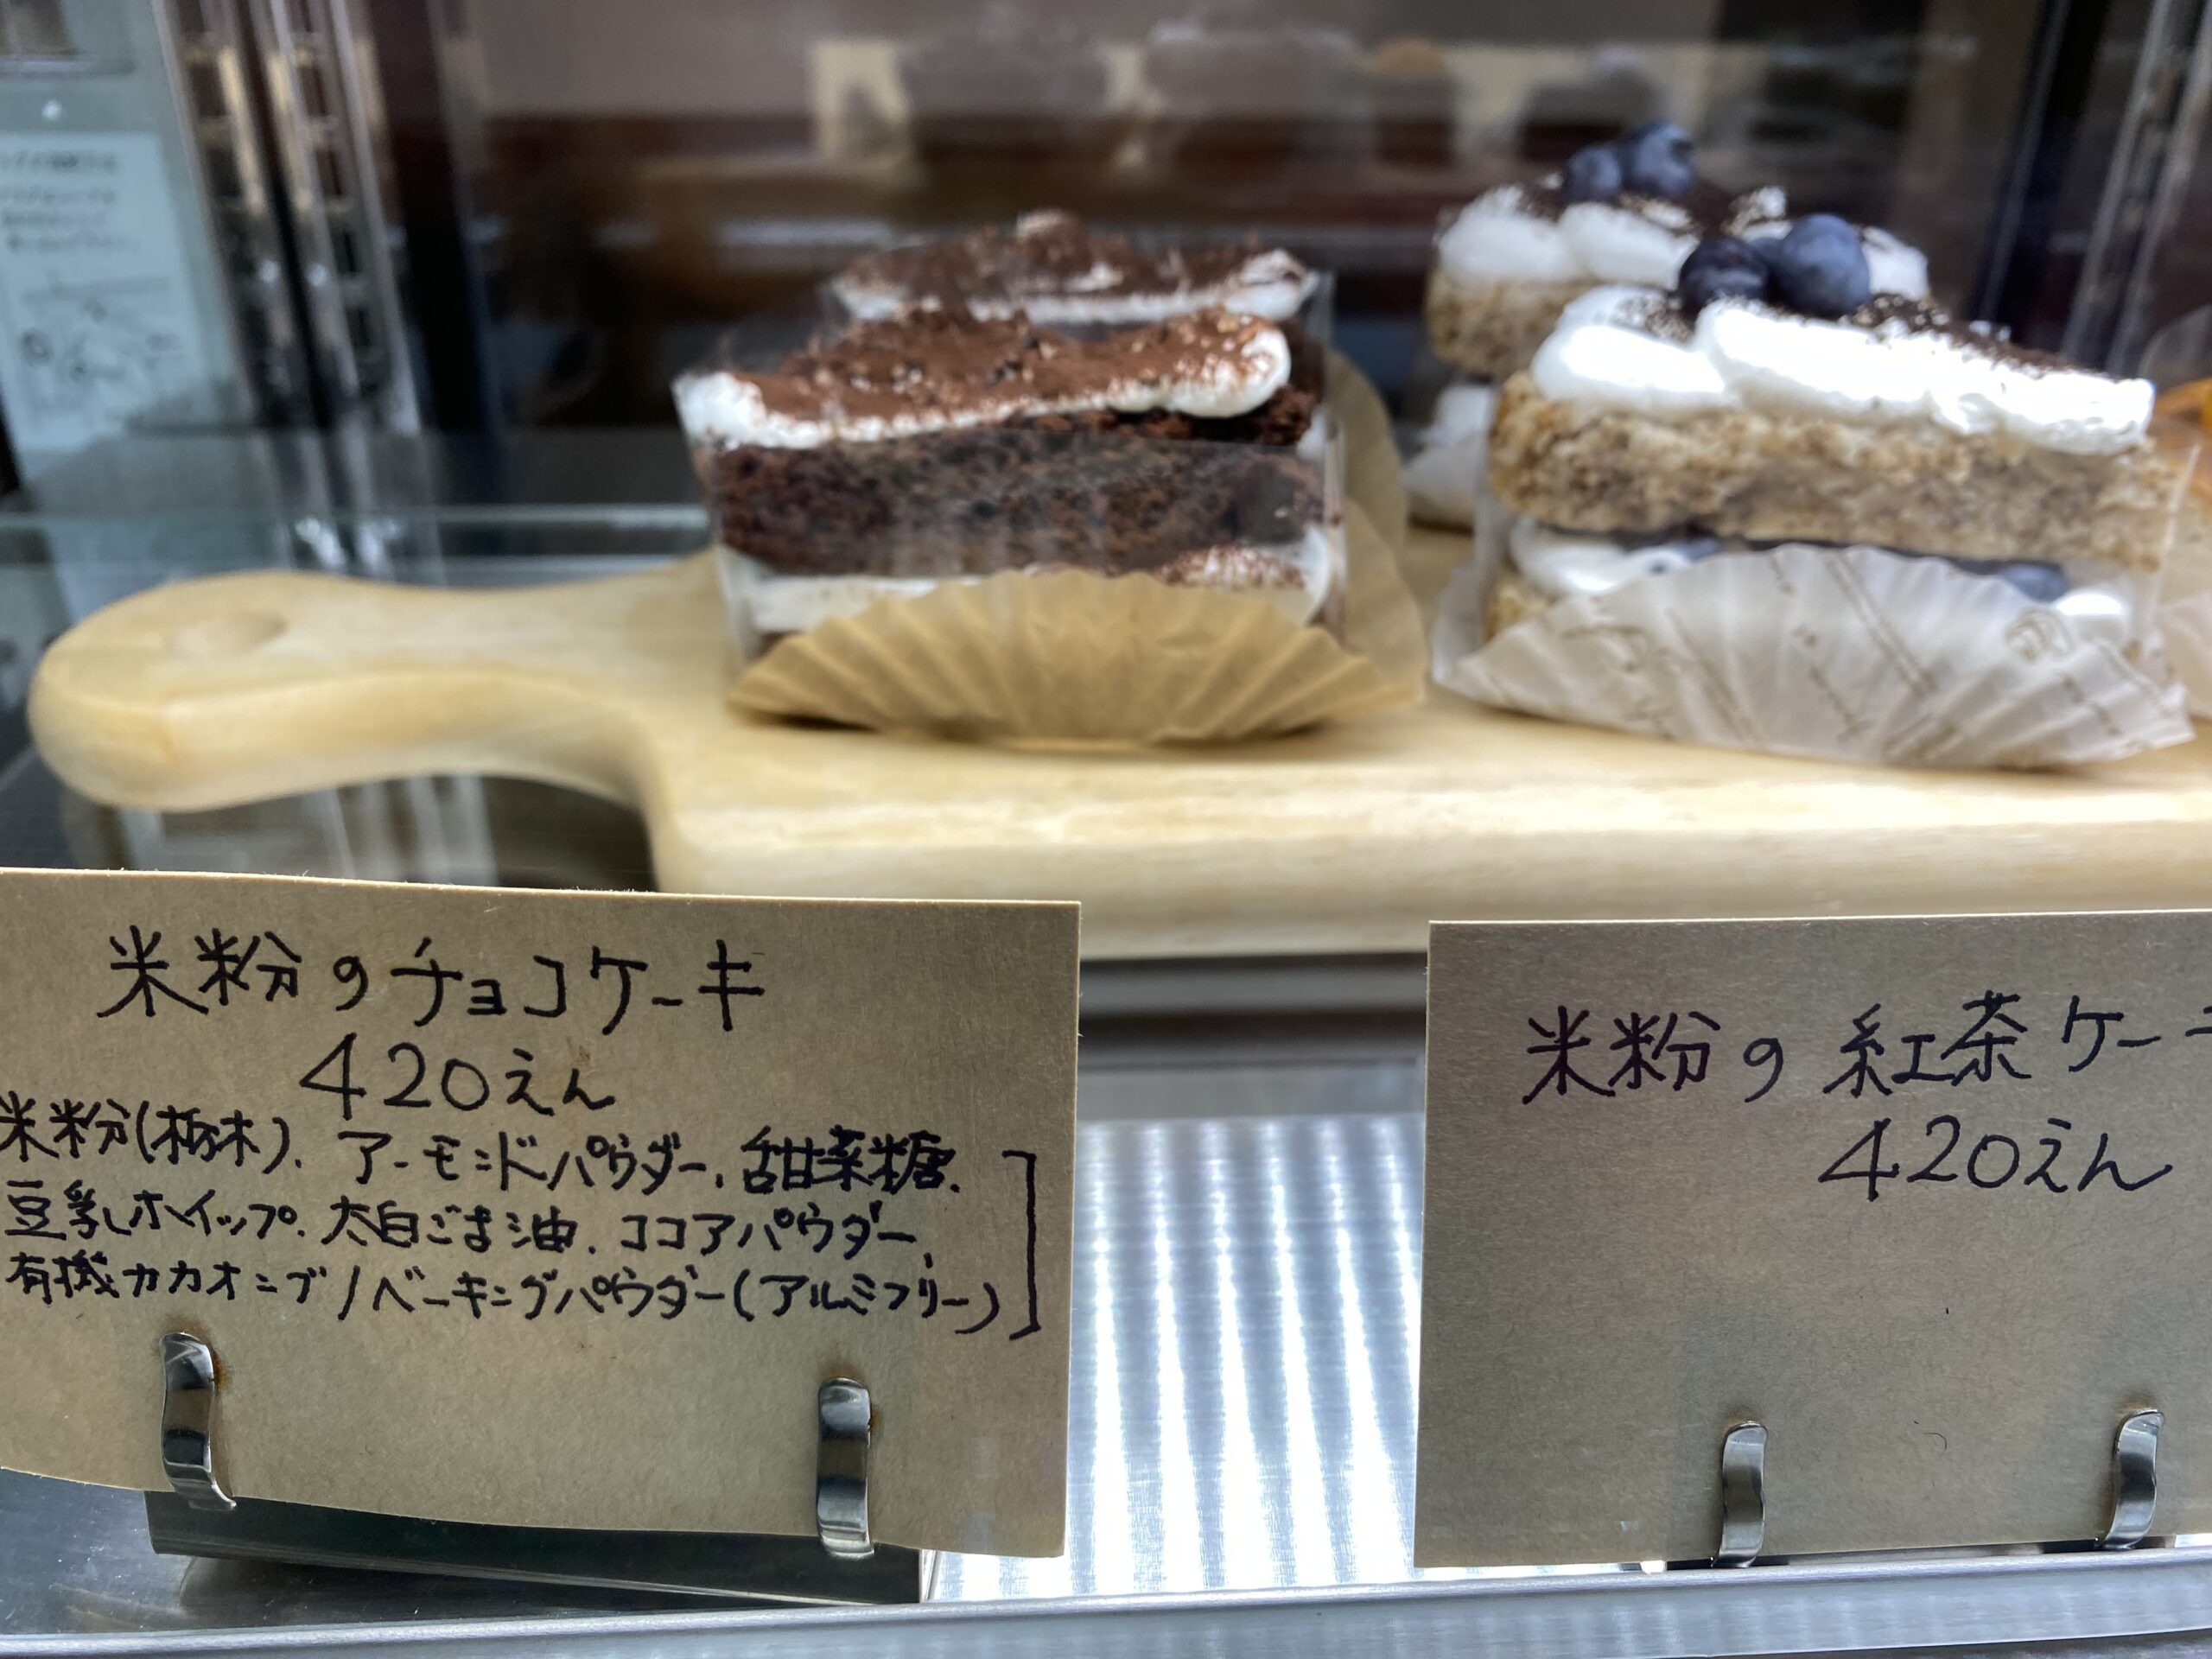 米粉のチョコケーキ
420えん
米粉(栃木)、アーモンドパウダー、甜菜糖、
豆乳ホイップ、太白ごま油、ココアパウダー、
有機カカオニブ/ベーキングパウダー(アルミフリー)]
米粉の紅茶ケー
420えん